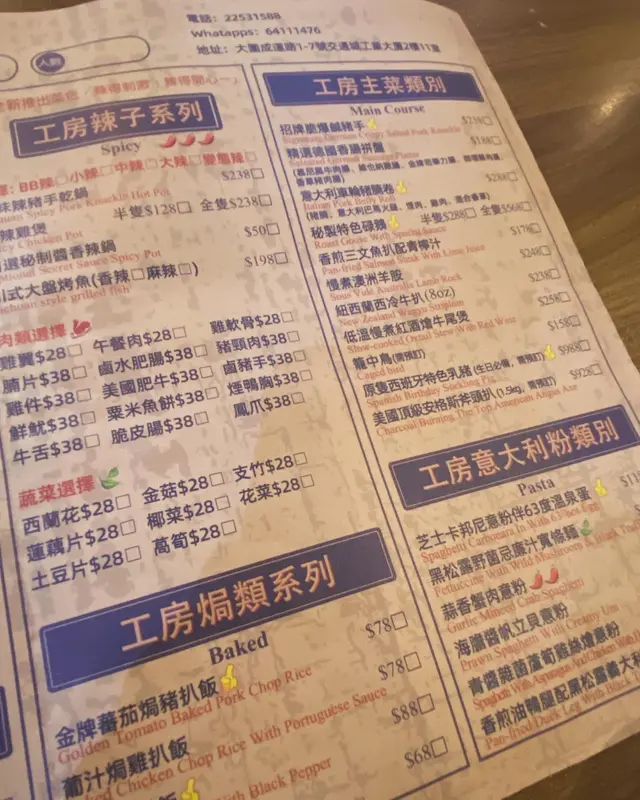 電話：22531588
Whatapps：64111476
地址：大圍成運路1-7號交通城工業大廈2樓11室
人數
工房辣子系列
Spicy
BB辣 小辣 中辣 大辣 變態辣
辣豬手乾鍋 $238
Spicy Pork Knuckle Hot Pot
辣雞煲 半隻$128 全隻$238
Chicken Pot
選秘制醬香辣鍋 $50
Secret Sauce Spicy Pot
式大盤烤魚(香辣 麻辣) $198
style grilled fish
肉類選擇
雞翼$28 午餐肉$28 雞軟骨$28
腩片$38 鹵水肥腸$38 豬頸肉$38
雞件$38 美國肥牛$38 鹵豬手$38
鮮魷$38 粟米魚餅$38 煙鴨胸$38
牛舌$38 脆皮腸$38 鳳爪$38
蔬菜選擇
西蘭花$28 金菇$28 支竹$28
蓮藕片$28 椰菜$28 花菜$28
土豆片$28 萵筍$28
工房焗類系列
Baked
金牌蕃茄焗豬扒飯 $78
Golden Tomato Baked Pork Chop Rice
葡汁焗雞扒飯 $78
Chicken Chop Rice With Portuguese Sauce
$88
With Black Pepper
$68
工房主菜類別
Main Course
招牌脆爆鹹豬手 $218
Signature German Crispy Salted Pork Knuckle
精選德國香腸拼盤 $188
Selected German Sausage Platter
意大利車輪豬腩卷 $288
Italian Pork Belly Roll
(豬腩，意大利巴馬火腿，煙肉，雞肉，混合香草)
秘製特色碌鵝 半隻$288 全隻$568
Roast Goose With Special Sauces
香煎三文魚扒配青檸汁 $178
Pan-fried Salmon Steak With Lime Juice
慢煮澳洲羊鞍 $248
Sous Vide Australia Lamb Rack
紐西蘭西冷牛扒(8oz) $238
New Zealand Wagyu Striploin
低溫慢煮紅酒燴牛尾煲 $258
Slow-cooked Oxtail Stew With Red Wine
籠中鳥(需預訂) $158
Caged bird
原隻西班牙特色乳豬(生日必備，需預訂) $988
Spanish Birthday Suckling Pig
美國頂級安格斯斧頭扒(1.5kg，需預訂) $928
Charcoal Burning The Top American Angus Axe
工房意大利粉類別
Pasta
芝士卡邦尼意粉伴63度溫泉蛋
Spaghetti Carbonara In With 63°c
黑松露野菌忌廉汁寬條麵
Fettuccine With Wild Mushroom & Black
蒜香蟹肉意粉
Garlic Minced Crab Spaghetti
海膽醬帆立貝意粉
Prawn Spaghetti With Creamy Uni
青醬雜菌蘆筍雞絲燴意粉
Spaghetti With Asparagus And Chicken
香煎油鴨腿配黑松露意大利
Pan-fried Duck Leg With Black